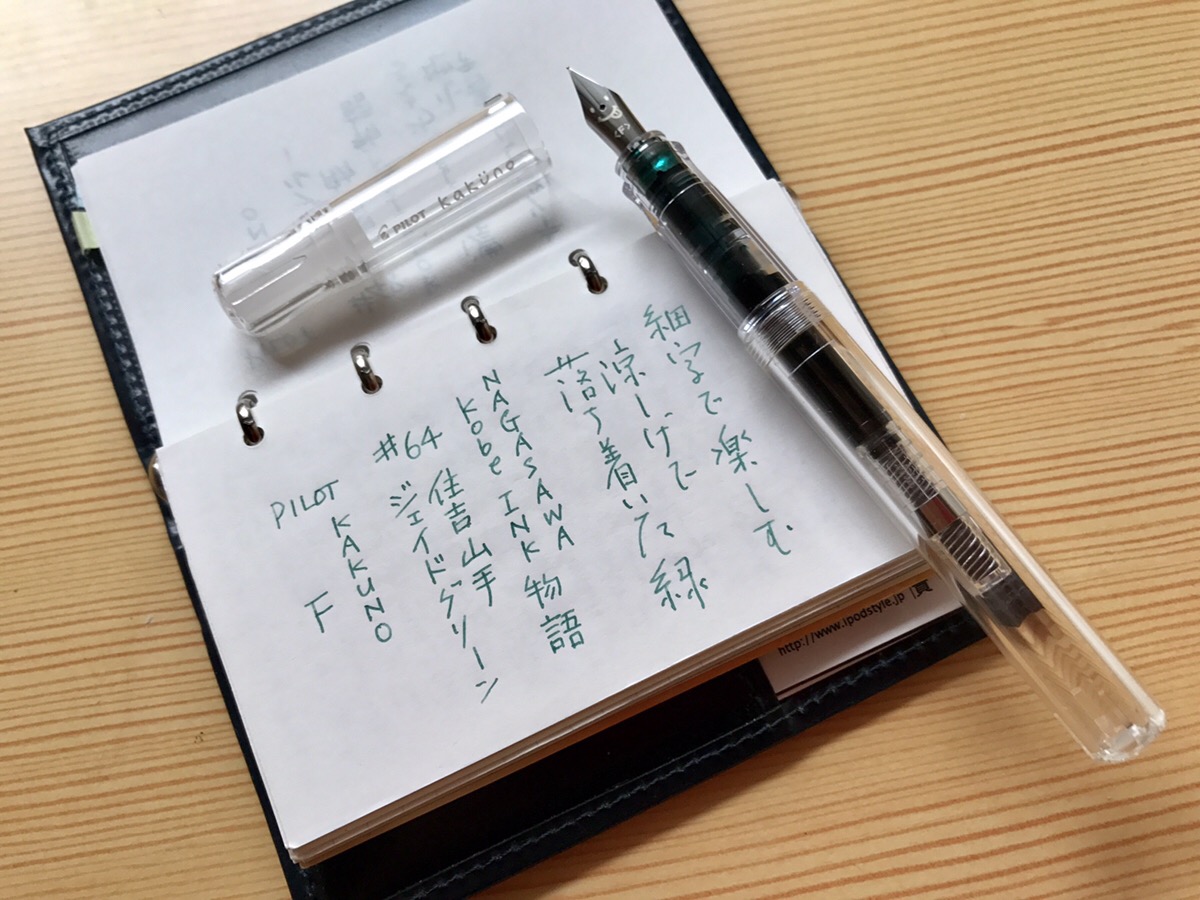 細字で楽しむ
涼しげで
落ち着いた緑
NAGASAWA
Kobe INK物語
#64 住吉山手
ジェイドグリーン
PILOT
KAKUNO
F
PILOT kaküno
F
http://www.ipodstyle.jp